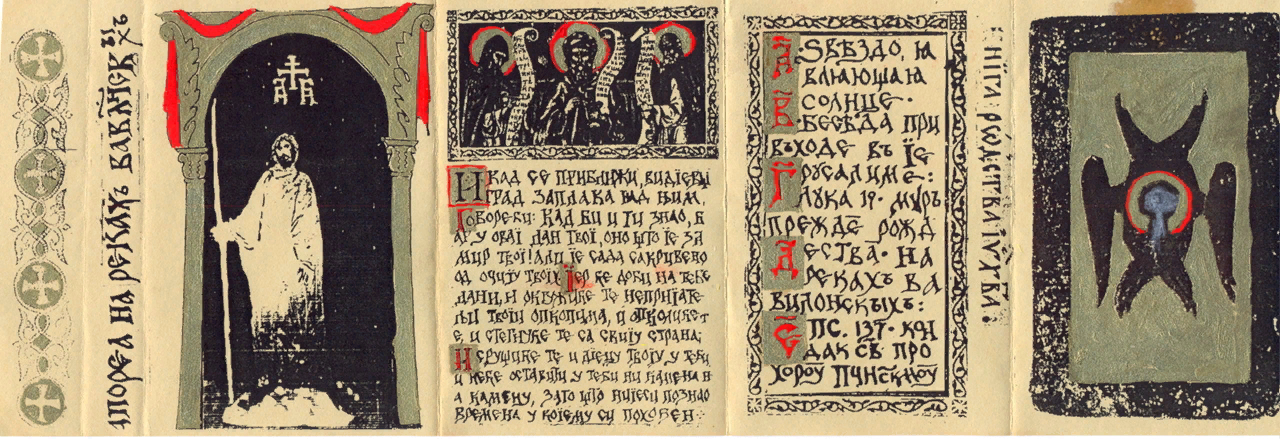 АПОРЕА НА РЕКАХЪ ВАВЛ҃НСКЪІХЪ
И КАД СЕ ПРИБЛИЖИ, ВИДЈЕВИ
ГРАД ЗАПЛАКА НАД ЊИМ,
ГОВОРЕЋИ: КАД БИ И ТИ ЗНАО, Б
АР У ОВАЈ ДАН ТВОЈ, ОНО ШТО ЈЕ ЗА
МИР ТВОЈ! АЛИ ЈЕ САДА САКРИВЕНО
ОД ОЧИЈУ ТВОЈИХ ЈЕР ЋЕ ДОЋИ НА ТЕБЕ
ДАНИ, И ОКРУЖИЋЕ ТЕ НЕПРИЈАТЕ
ЉИ ТВОЈИ ОПКОПИМА, И ОПКОЛИЋЕ Т
Е, И СТЕГНУЋЕ ТЕ СА СВИЈУ СТРАНА;
И СРУШИЋЕ ТЕ И ДЈЕЦУ ТВОЈУ У ТЕБИ
И НЕЋЕ ОСТАВИТИ У ТЕБИ НИ КАМЕНА Н
А КАМЕНУ, ЗАТО ШТО НИЈЕСИ ПОЗНАО
ВРЕМЕНА У КОЈЕМУ СИ ПОХОЂЕН
А·ЅВѢЗДО, ꙖА
ВЛꙖЮЩАꙖ
СОЛНЦЕ·
В·БЕСѢДА ПРИ
ВЪХОДЕ ВЪ ЇЕ
Г РУСАЛИМЕ:
ЛУКА 19· МѴРЪ
ПРЕЖДЕ РОЖД
ЕСТВА· НА
Д РЕКАХЪ ВА
ВИЛОНСКЫХЪ:
Є ПС. 137· КОН
ДАК СВ҃ ПРО
ХОРОУ ПЧИЊСКМОУ
КНІГА: РОДСТВА ІУ ХВ҃А